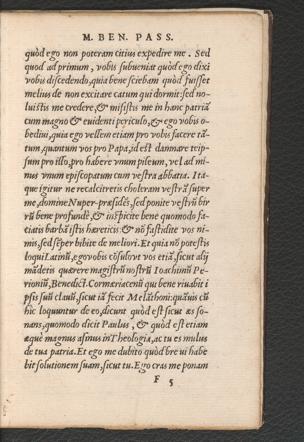 M. BEN. PASS.
quòd ego non poteram citius expedire me. Sed
quod ad primum, vobis subueniat quòd ego dixi
vobis discedendo, quia bene sciebam quòd fuisset
melius de non excitare catum qui dormit: sed no-
luistis me credere, & misistis me in hanc patriā
cum magno & euidenti periculo, & ego vobis o-
bediui, quia ego vellem etiam pro vobis facere tā-
tum, quantum vos pro Papa, id est damnare teip-
sum pro illo, pro habere vnum pileum, vel ad mi-
nus vnum episcopatum cum vestra abbatia. Ita-
que igitur ne recalcitretis choleram vestrā super
me, domine Nuper-præsidēs, sed ponite vestrū bir
rū bene profundè, & inspicite bene quomodo fa-
ciatis barbā istis hæreticis: & nō fastidite vos ni-
mis, sed sēper bibite de meliori. Et quia nō potestis
loqui Latinū, ego vobis cōsulo vt vos etiā, sicut alij
mādetis quærere magistrū nostrū Ioachinū Pe-
rioniū, Benedict. Cormæriacenū qui bene riuabit i
psis suū clauū, sicut iā fecit Melāthoni: quāuis cū
hic loquuntur de eo, dicunt quòd est sicut æs so-
nans, quomodo dicit Paulus, & quòd est etiam
æquè magnus asinus in Theologia, ac tu es mulus
de tua patria. Et ego me dubito quòd bre ui habe
bit solutionem suam, sicut tu. Ego cras me ponam
F 5